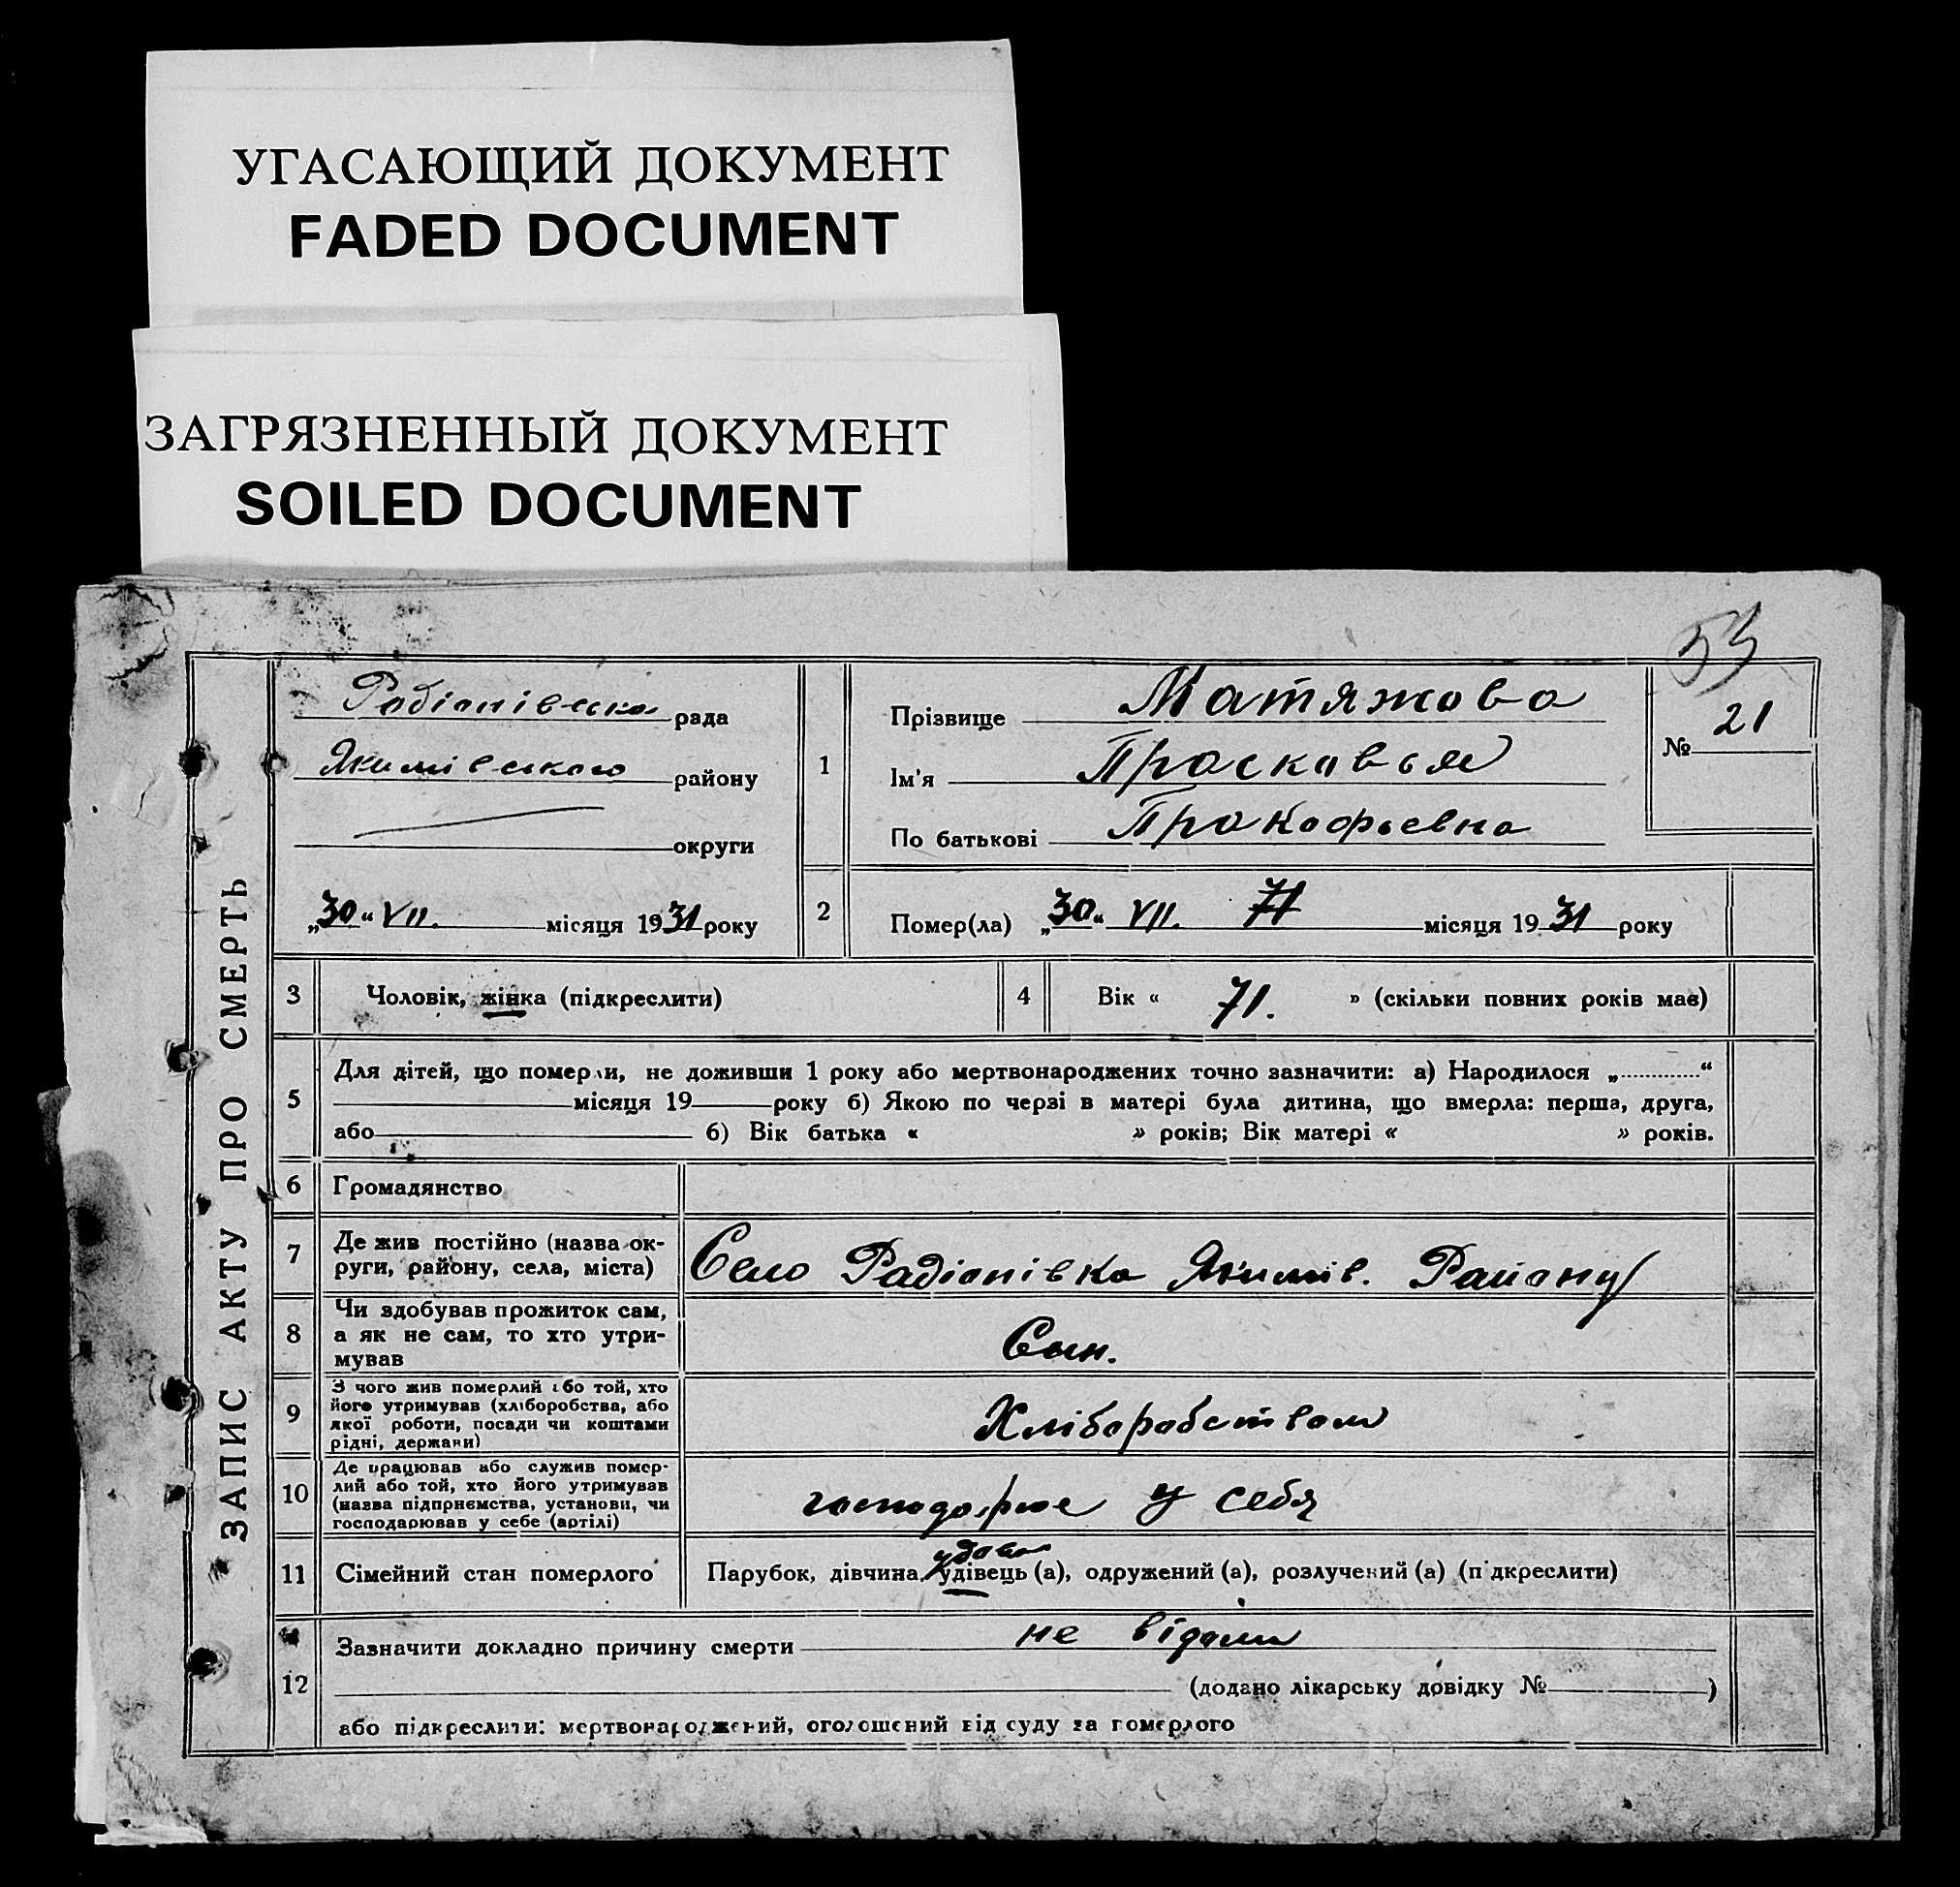 УГАСАЮЩИЙ ДОКУМЕНТ
FADED DOCUMENT
ЗАГРЯЗНЕННЫЙ ДОКУМЕНТ
SOILED DOCUMENT
53
ЗАПИС АКТУ ПРО СМЕРТЬ
Радіонівська рада
Якимівського району
округи
„30“ VII. місяця 1931 року
1
Прізвище Матяжова
Ім'я Просковья
По батькові Прокофьевна
№ 21
2
Помер(ла) „30“ VII. 71 місяця 1931 року
3 Чоловік, жінка (підкреслити)
4 Вік « 71. » (скільки повних років має)
5
Для дітей, що померли, не доживши 1 року або мертвонароджених точно зазначити: а) Народилося „ “
місяця 19 року б) Якою по черзі в матері була дитина, що вмерла: перша, друга,
або б) Вік батька « » років; Вік матері « » років.
6 Громадянство
7
Де жив постійно (назва ок-
руги, району, села, міста)
Село Радіонівка Якимів. Району
8
Чи здобував прожиток сам,
а як не сам, то хто утри-
мував
Сын.
9
З чого жив померлий або той, хто
його утримував (хліборобства, або
якої роботи, посади чи коштами
рідні, держави)
Хліборобством
10
Де працював або служив помер-
лий або той, хто його утримував
(назва підприємства, установи, чи
господарював у себе (артілі)
господарює у себя
11 Сімейний стан померлого
удова
Парубок, дівчина, удівець (а), одружений (а), розлучений (а) (підкреслити)
12
Зазначити докладно причину смерти не відома
(додано лікарську довідку № )
або підкреслити: мертвонароджений, оголошений від суду за померлого